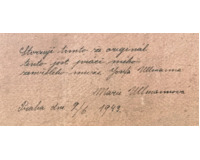 Stvrzuji tímto za originál
tento jest prací mého
zemřelého muže Josefa Ullmanna
Marie Ullmannová
Praha dne 9/6 1942.